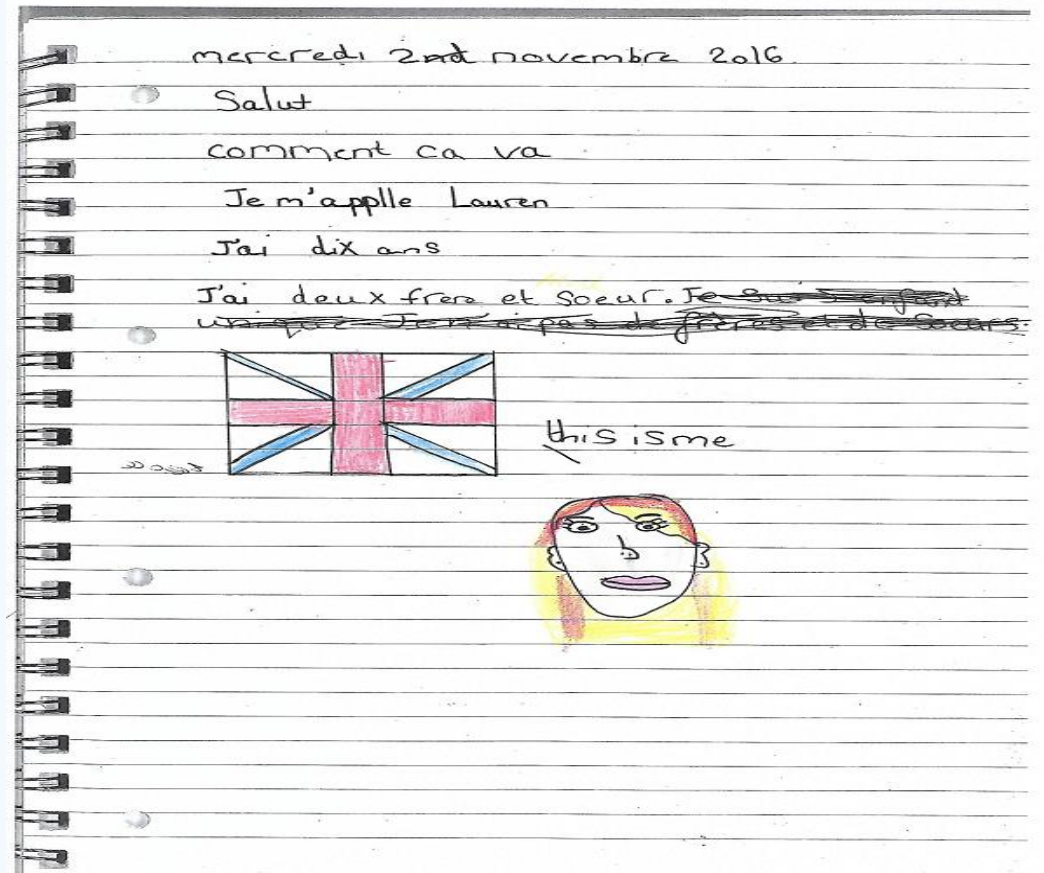 mercredi 2nd novembre 2016
Salut
comment ca va
Je m'applle Lauren
J'ai dix ans
J'ai deux frere et Soeur. Je suis enfant
unique Je n'ai pas de frères et de Soeurs.
this is me